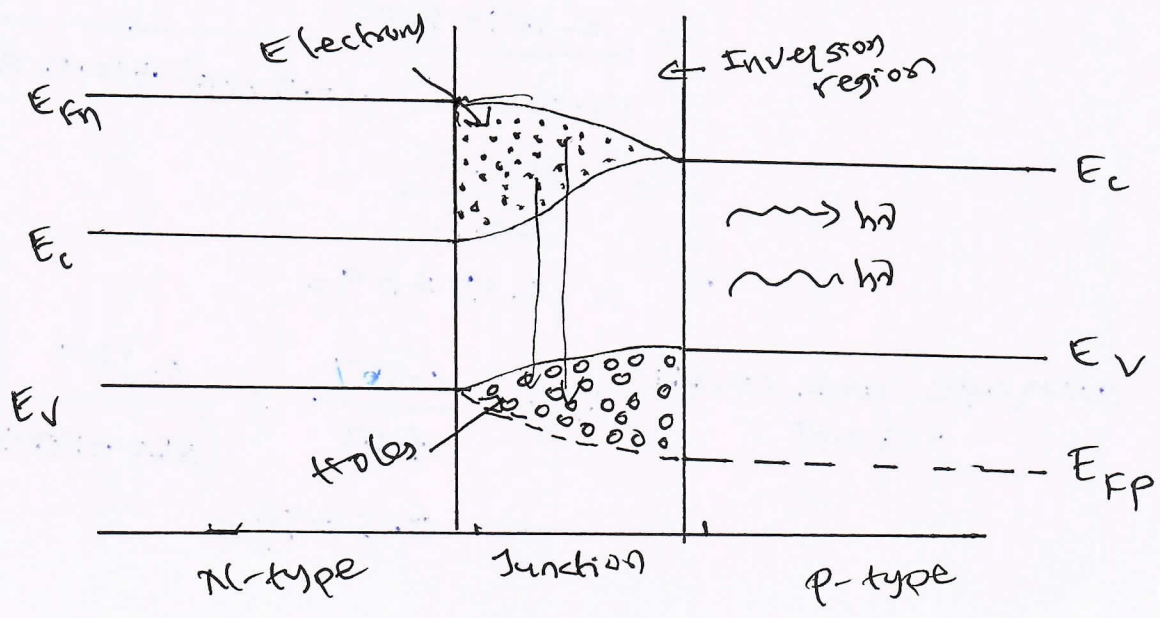 Electrons
Inversion
region
E_Fn
E_c
E_c
hν
hν
E_v
E_v
Holes
E_Fp
N-type
Junction
p-type